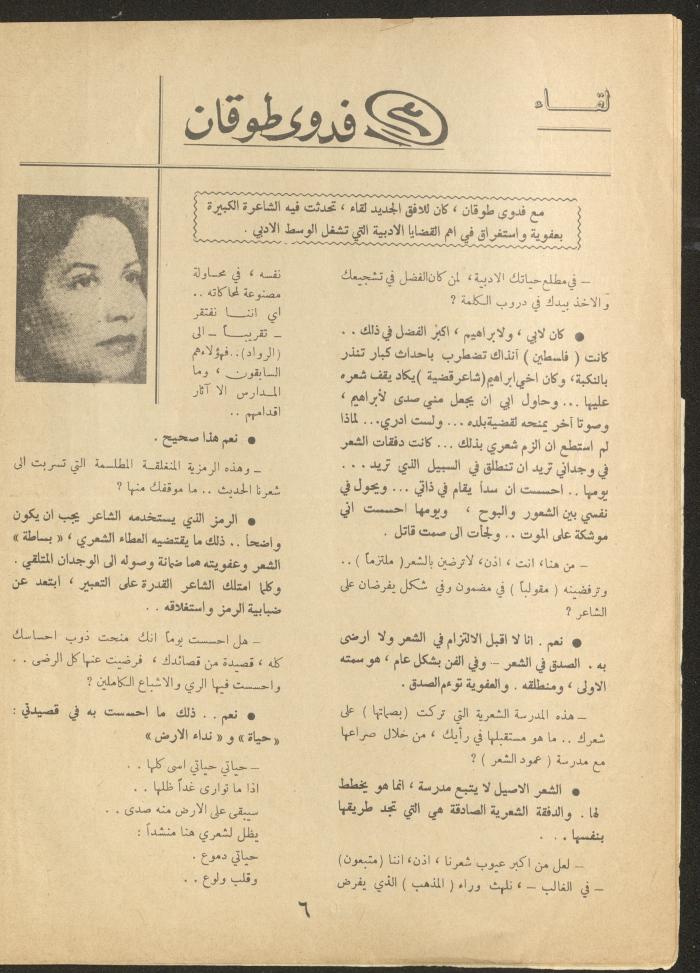 لقـــاء
مع فدوى طوقان
مع فدوى طوقان ، كان للافق الجديد لقاء ، تحدثت فيه الشاعرة الكبيرة
بعفوية واستغراق في اهم القضايا الادبية التي تشغل الوسط الادبي .
– في مطلع حياتك الادبية ، لمن كان الفضل في تشجيعك
والاخذ بيدك في دروب الكلمة ؟
● كان لابي ، ولابراهيم ، اكبر الفضل في ذلك ..
كانت ( فلسطين ) آنذاك تضطرب باحداث كبار تنذر
بالنكبة ، وكان اخي ابراهيم (شاعر قضية ) يكاد يقف شعره
عليها ... وحاول ابي ان يجعل مني صدى لأبراهيم ،
وصوتا آخر يمنحه لقضية بلده ... ولست ادري... لماذا
لم استطع ان الزم شعري بذلك ... كانت دفقات الشعر
في وجداني تريد ان تنطلق في السبيل الذي تريد ...
يومها .. احسست ان سداً يقام في ذاتي ... ويحول في
نفسي بين الشعور والبوح ، ويومها احسست اني
موشكة على الموت .. ولجأت الى صمت قاتل .
– من هنا ، انت ، اذن ، لاترضين بالشعر ( ملتزماً ) ..
وترفضينه ( مقولباً ) في مضمون وفي شكل يفرضان على
الشاعر ؟
● نعم . انا لا اقبل الالتزام في الشعر ولا ارضى
به . الصدق في الشعر – وفي الفن بشكل عام ، هو سمته
الاولى ، ومنطلقه . والعفوية توءم الصدق .
– هذه المدرسة الشعرية التي تركت ( بصماتها ) على
شعرك .. ما هو مستقبلها في رأيك ، من خلال صراعها
مع مدرسة ( عمود الشعر ) ؟
● الشعر الاصيل لا يتبع مدرسة ، انما هو يخطط
لها . والدفقة الشعرية الصادقة هي التي تجد طريقها
بنفسها . . .
– لعل من اكبر عيوب شعرنا ، اذن ، اننا (متبعون)
– في الغالب – ، نلهث وراء ( المذهب ) الذي يفرض
نفسه ، في محاولة
مصنوعة لمحاكاته ..
اي اننــا نفتقر
– تقريبــاً – الى
(الرواد) .. فهؤلاء هم
السابقون ، وما
المدارس الا آثار
اقدامهم ..
● نعم هذا صحيح .
– وهذه الرمزية المنغلقة المطلسمة التي تسربت الى
شعرنا الحديث .. ما موقفك منها ؟
● الرمز الذي يستخدمه الشاعر يجب ان يكون
واضحاً .. ذلك ما يقتضيه العطاء الشعري ، « بساطة »
الشعر وعفويته هما ضمانة وصوله الى الوجدان المتلقي .
وكلما امتلك الشاعر القدرة على التعبير ، ابتعد عن
ضبابية الرمز واستغلاقه ..
– هل احسست يوماً انك منحت ذوب احساسك
كله ، قصيدة من قصائدك ، فرضيت عنها كل الرضى ..
واحسست فيها الري والاشباع الكاملين ؟
● نعم .. ذلك ما احسست به في قصيدتي :
« حياة » و « نداء الارض »
– حياتي حياتي اسى كلها ..
اذا ما توارى غداً ظلها ..
سيبقى على الارض منه صدى ..
يظل لشعري هنا منشداً :
حياتي دموع .
وقلب ولوع ..
٦